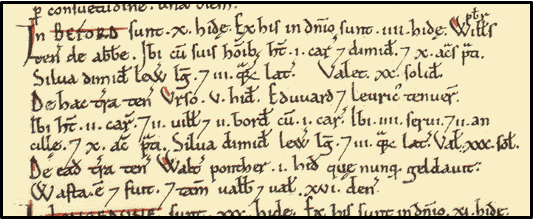 p consuetudine. una diem.
In BEFORD sunt .x. hidę. Ex his in dn̄io sunt .iiii. hidę. Witts pbr
ten̄ de abb̄e. Ibi cū suis hōib; hт̄ .i. car̄ 7 dimid̄. 7 x. ac̄s p̄ti.
Silua dimid̄ leuu lḡ. 7 iii. qr̄ lat̄. Valet .xx. solid̄.
De hac tr̄a ten̄ Vrso .v. hid̄. Eduuard 7 Leuric' tenuer̄.
Ibi hт̄ .ii. car̄. 7 ii. uill̄ 7 ii. bord̄ cū .i. car̄. Ibi .iiii. serui. 7 ii. an
cillę. 7 x. ac̄ p̄ti. Silua dimid̄ leuu lḡ. 7 iii. qr̄ lat̄. Val̄ .xxx. sol̄.
De ead̄ tr̄a ten̄ Walt̄ poncher .i. hid̄ quę nunq̄ geldauit.
Wasta .ē 7 fuit. 7 tam̄ ualb̄ 7 ual̄ .xvi. den̄.
sunt .xx. hidę. Ex his sunt in dn̄io .xi. hidę.